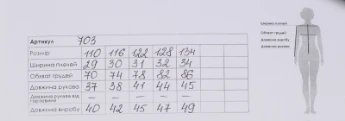 Артикул 703
Розмір 110 116 122 128 134
Ширина плечей 29 30 31 32 34
Обхват грудей 70 74 78 82 86
Довжина рукава 37 38 41 44 45
Довжина рукава від горловини — — — — —
Довжина виробу 40 42 45 47 49
Ширина плечей
Обхват грудей
Довжина рукава
Довжина виробу